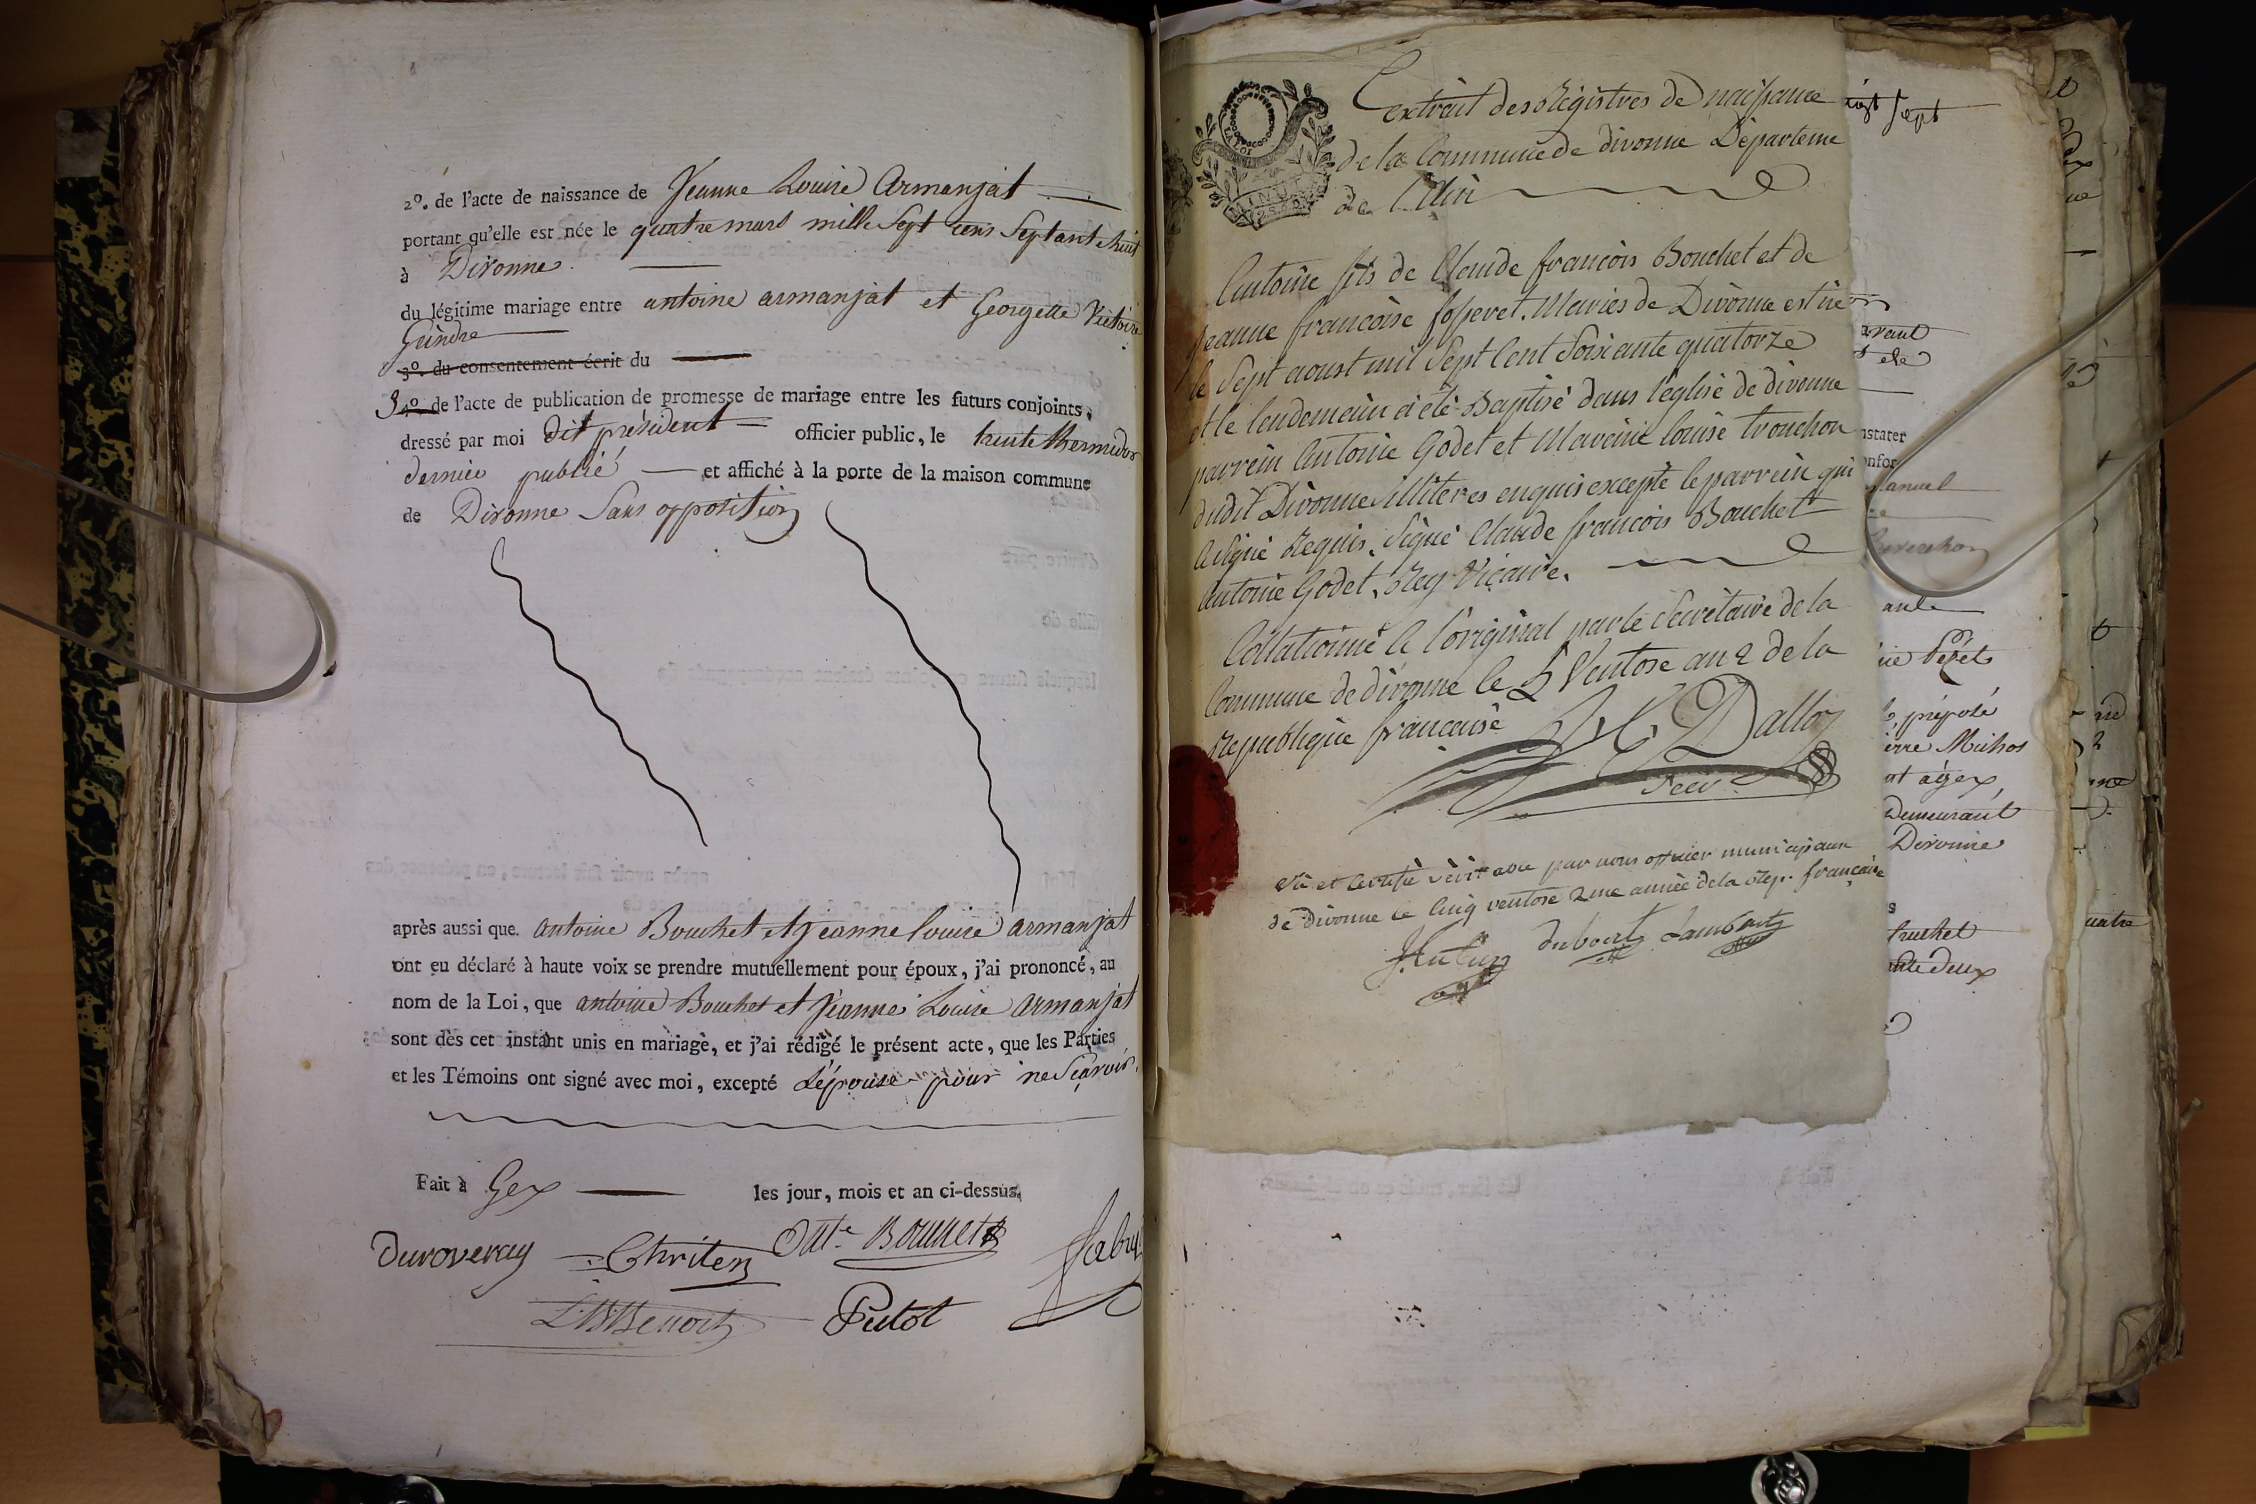 2º. de l'acte de naissance de Jeanne Louise Armanjat
portant qu'elle est née le quatre mars mille Sept cens Septante huit
à Divonne
du légitime mariage entre antoine armanjat et Georgette Victoire
Gindre
3º. du consentement écrit du
3 4º de l'acte de publication de promesse de mariage entre les futurs conjoints,
dressé par moi dit président officier public, le trente thermidor
dernier publié et affiché à la porte de la maison commune
de Divonne Sans opposition
après aussi que antoine Bouchet et Jeanne Louise armanjat
ont eu déclaré à haute voix se prendre mutuellement pour époux, j'ai prononcé, au
nom de la Loi, que antoine Bouchet et Jeanne Louise armanjat
sont dès cet instant unis en mariage, et j'ai rédigé le présent acte, que les Parties
et les Témoins ont signé avec moi, excepté L'épouse pour ne Sçavoir.
Fait à Gex les jour, mois et an ci-dessus.
Duroveray Chriten Ant.e Bouchet fabry
Benoit Putot
extrait des Régistres de naissance
de la Commune de divonne Départeme
de l'ain
Antoine fils de Claude francois Bouchet et de
Jeanne francoise fosseret. Maries de Divonne est né
le Sept aoust mil Sept Cent Soixante quatorze
et le lendemain a eté Baptisé dans l'église de divonne
parrein Antoine Godet et Mareine louise trouchon
dudit Divonne illiteres enquis excepté le parrein qui
a signé Requis. Signé Claude francois Bouchet
Antoine Godet. Rey Vicaire.
Collationné a l'original par le Secrétaire de la
Commune de divonne le 5 Ventose an 2 de la
Republique francaise
Dalloz
Secr.
Vû et Certifié véritable par nous officier municipaux
de Divonne ce Cinq ventose 2me année de la Rep. française
dubout Lambert
ingt Sept
avant
nstater
onfor
manuel
Péset
préposé
ierre Michos
nt a gex
Demeurant
Divonne
Bruchet
ante deux
uatre